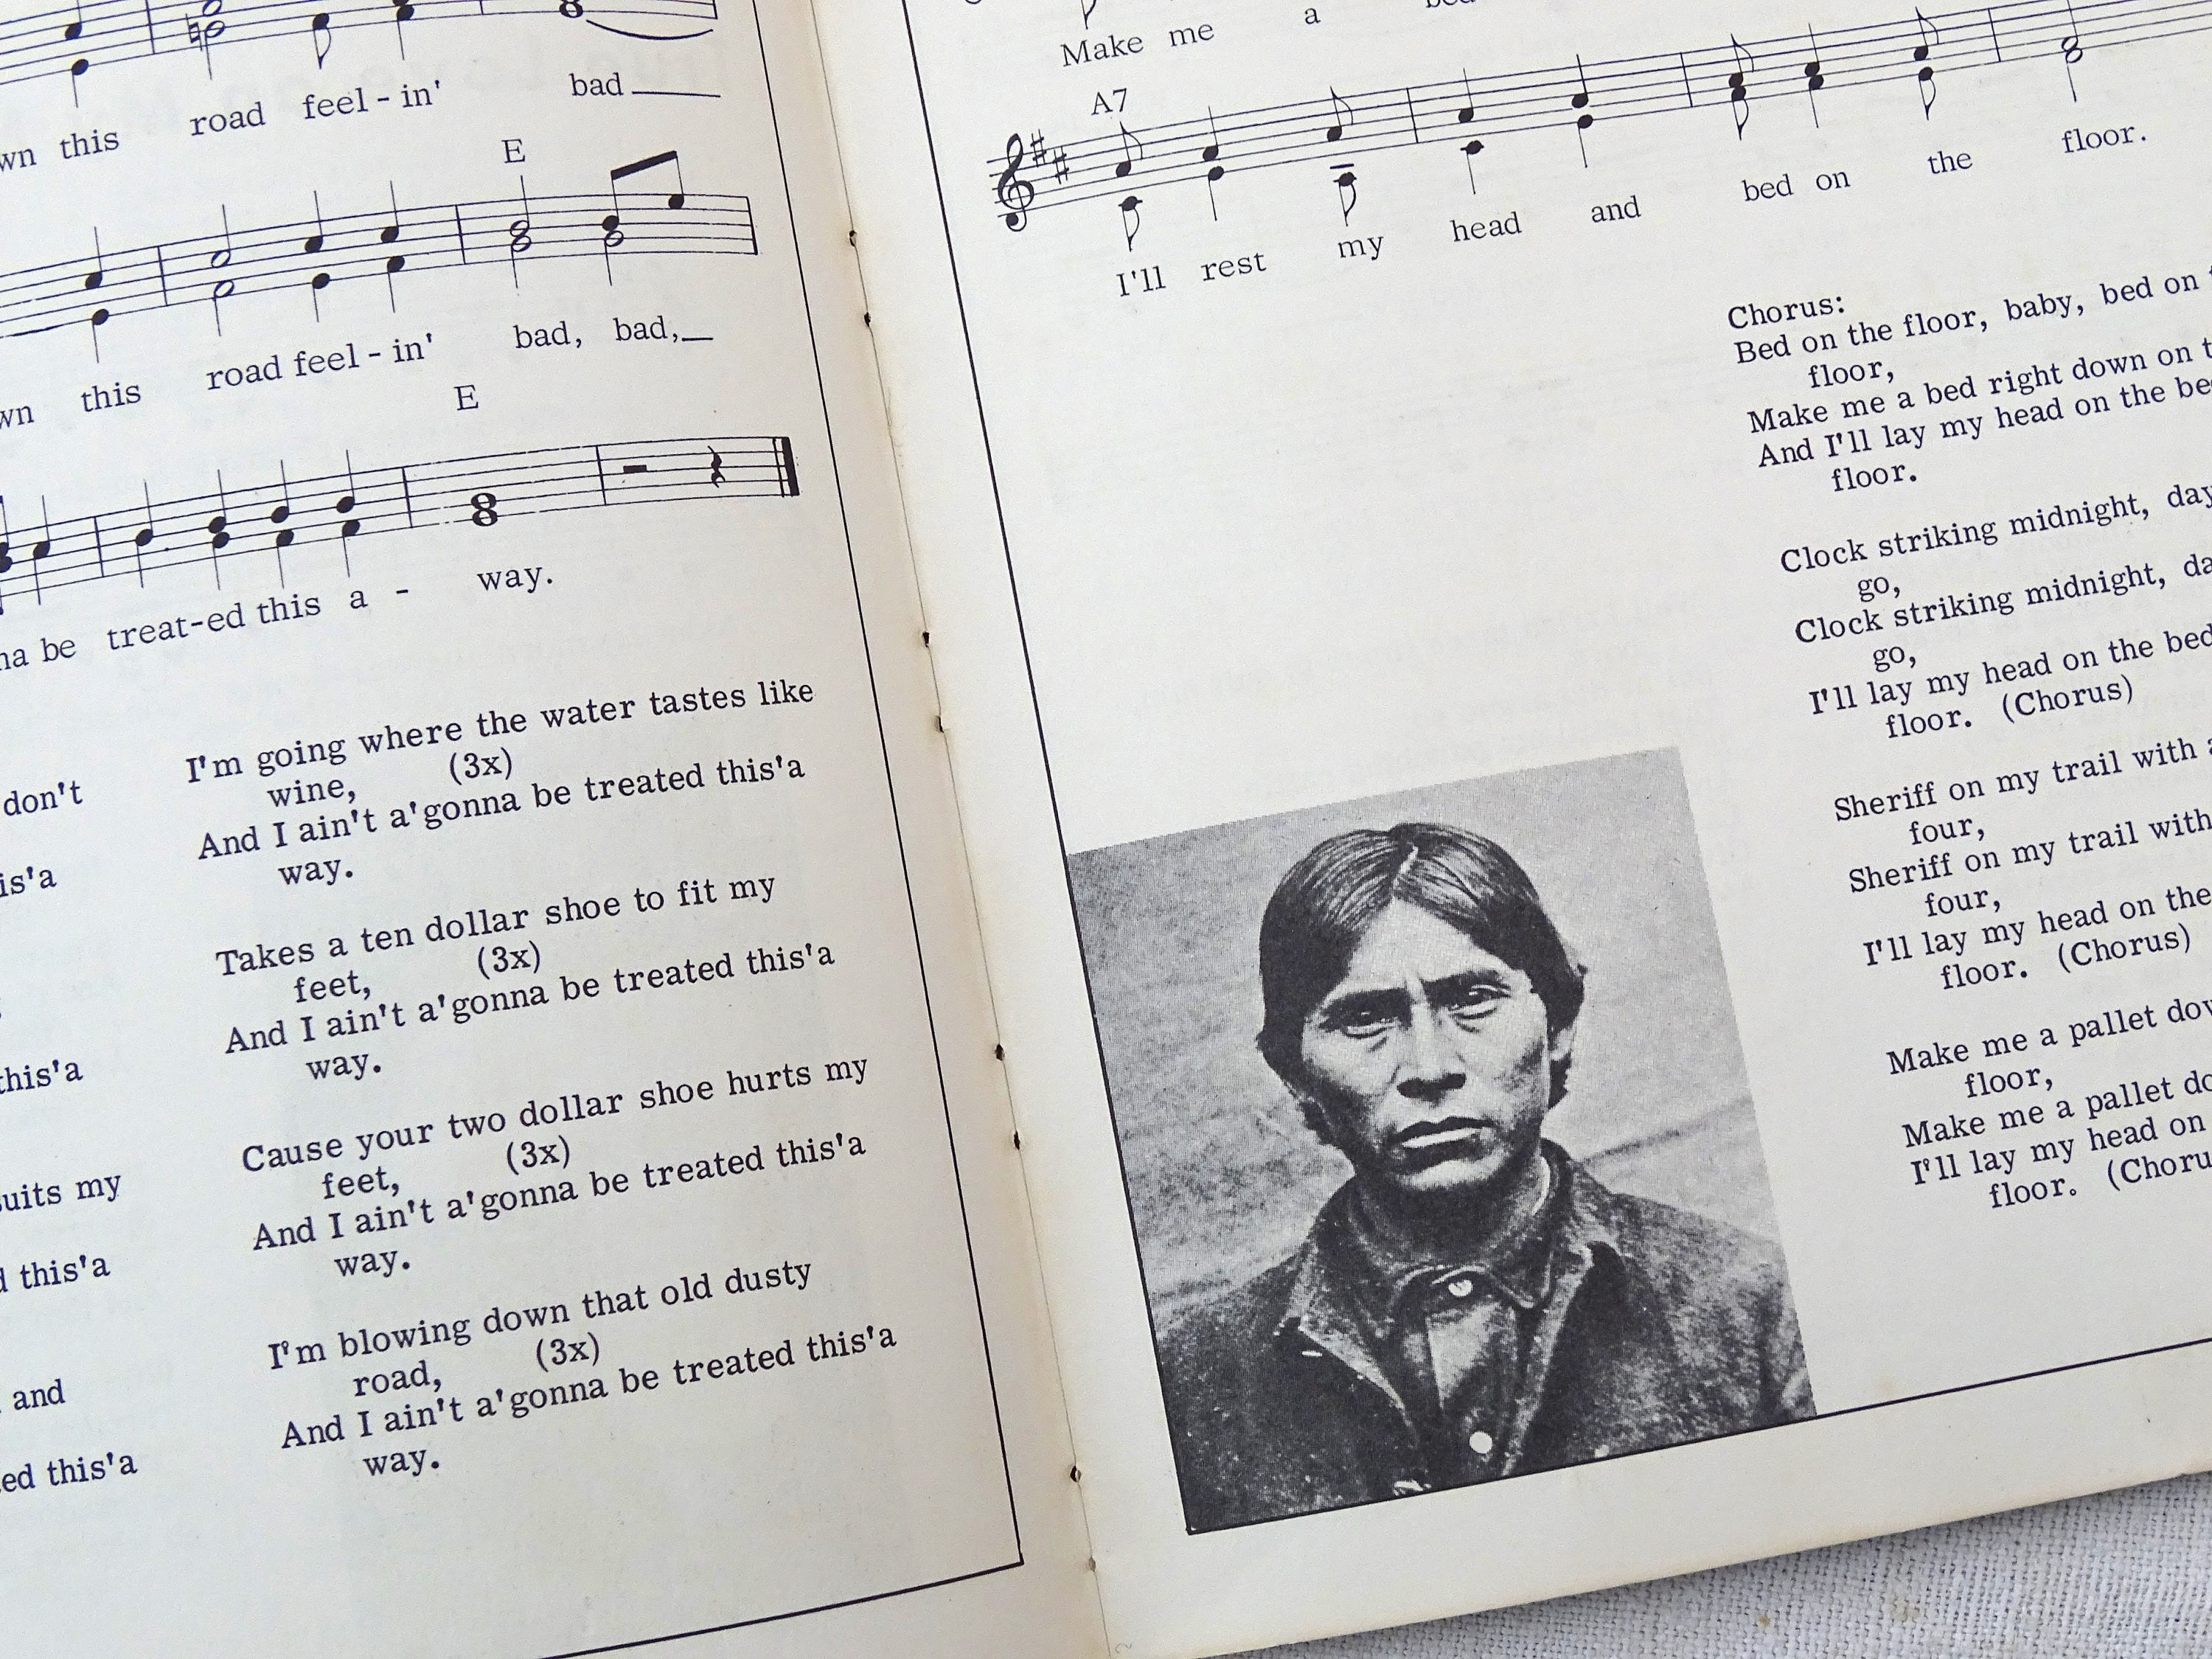 this road feel - in' bad
E
this road feel - in' bad, bad,
E
be treat-ed this a - way.
don't
this'a
suits my
this'a
and
this'a
I'm going where the water tastes like
wine, (3x)
And I ain't a'gonna be treated this'a
way.
Takes a ten dollar shoe to fit my
feet, (3x)
And I ain't a'gonna be treated this'a
way.
Cause your two dollar shoe hurts my
feet, (3x)
And I ain't a'gonna be treated this'a
way.
I'm blowing down that old dusty
road, (3x)
And I ain't a'gonna be treated this'a
way.
Make me a
A7
I'll rest my head and bed on the floor.
Chorus:
Bed on the floor, baby, bed on
floor,
Make me a bed right down on
And I'll lay my head on the
floor.
Clock striking midnight,
go,
Clock striking midnight,
go,
I'll lay my head on the bed
floor. (Chorus)
Sheriff on my trail with
four,
Sheriff on my trail with
four,
I'll lay my head on the
floor. (Chorus)
Make me a pallet
floor,
Make me a pallet
I'll lay my head on
floor.